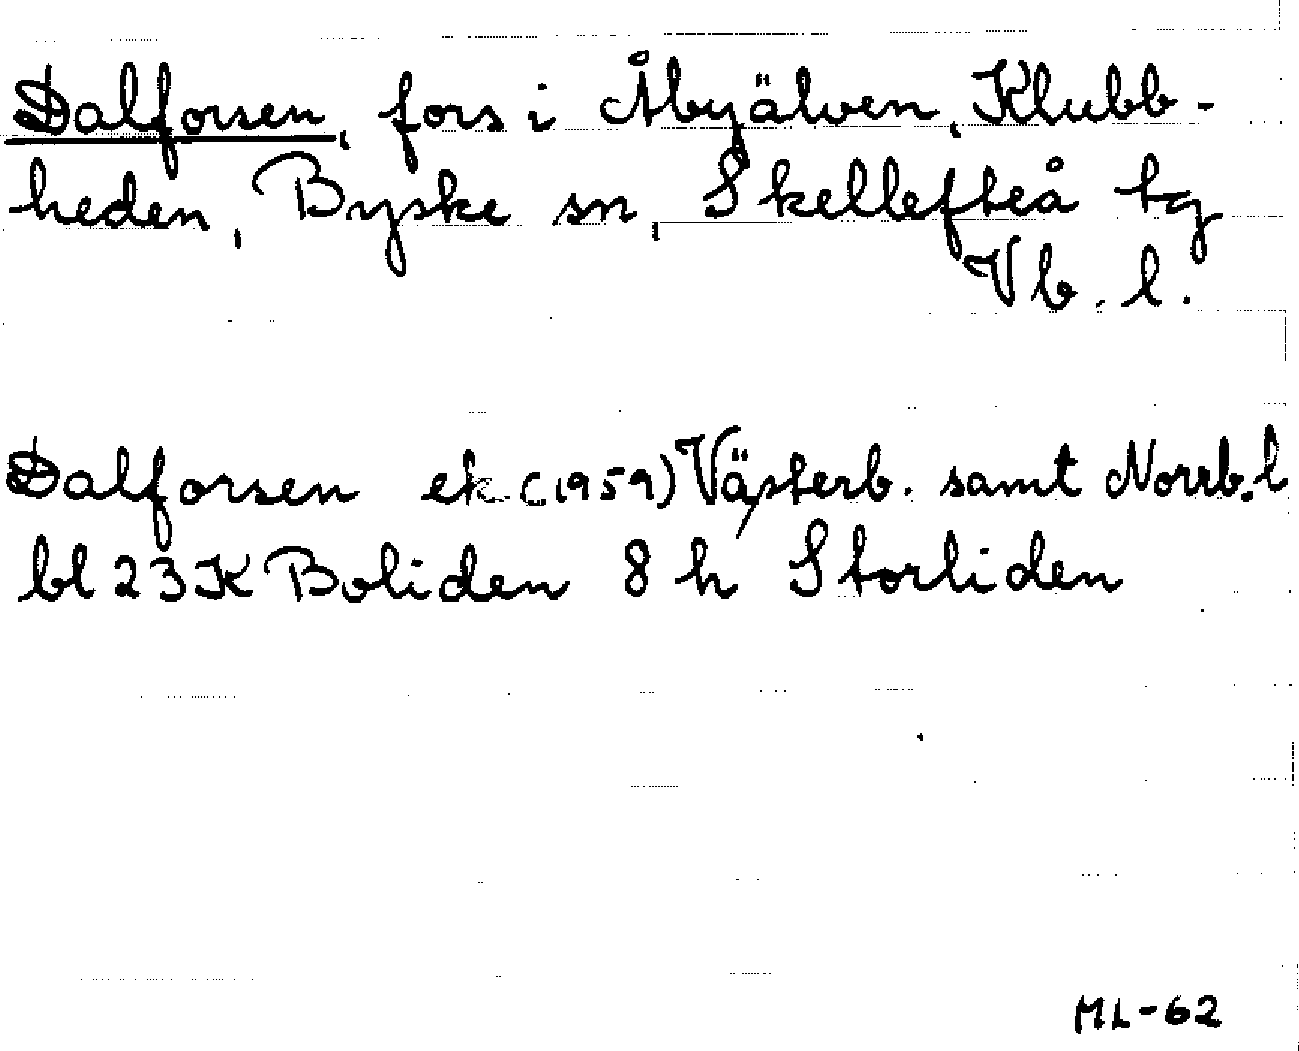 Dalforsen, fors i Åbyälven, Klubb-
heden, Byske sn, Skellefteå tg
Vb. l.
Dalforsen ek (1959) Västerb. samt Norrb. l
bl 23K Boliden 8 h Storliden
ML-62